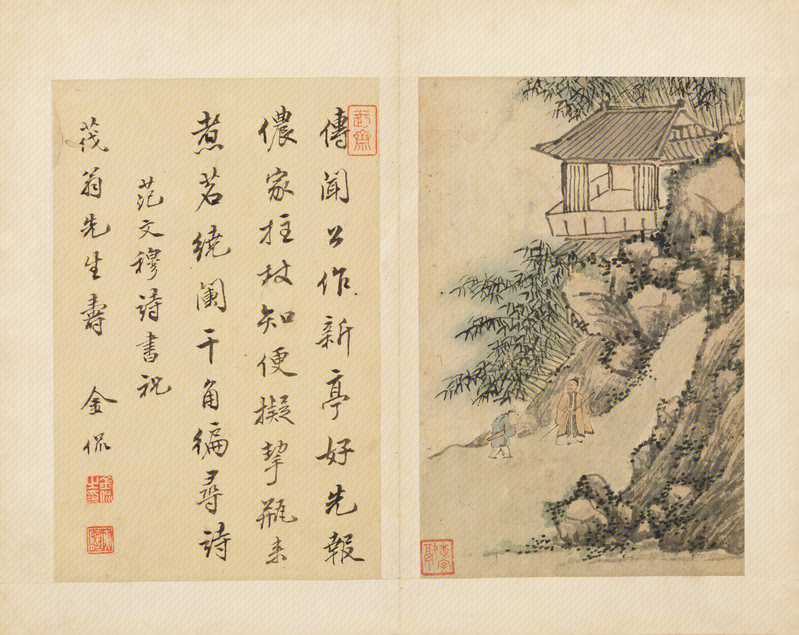 傳聞公作新亭好先報
儂家拄杖知便擬挈瓶来
煮茗繞闌干角徧尋詩
范文穆詩書祝
茷翁先生壽 金侃